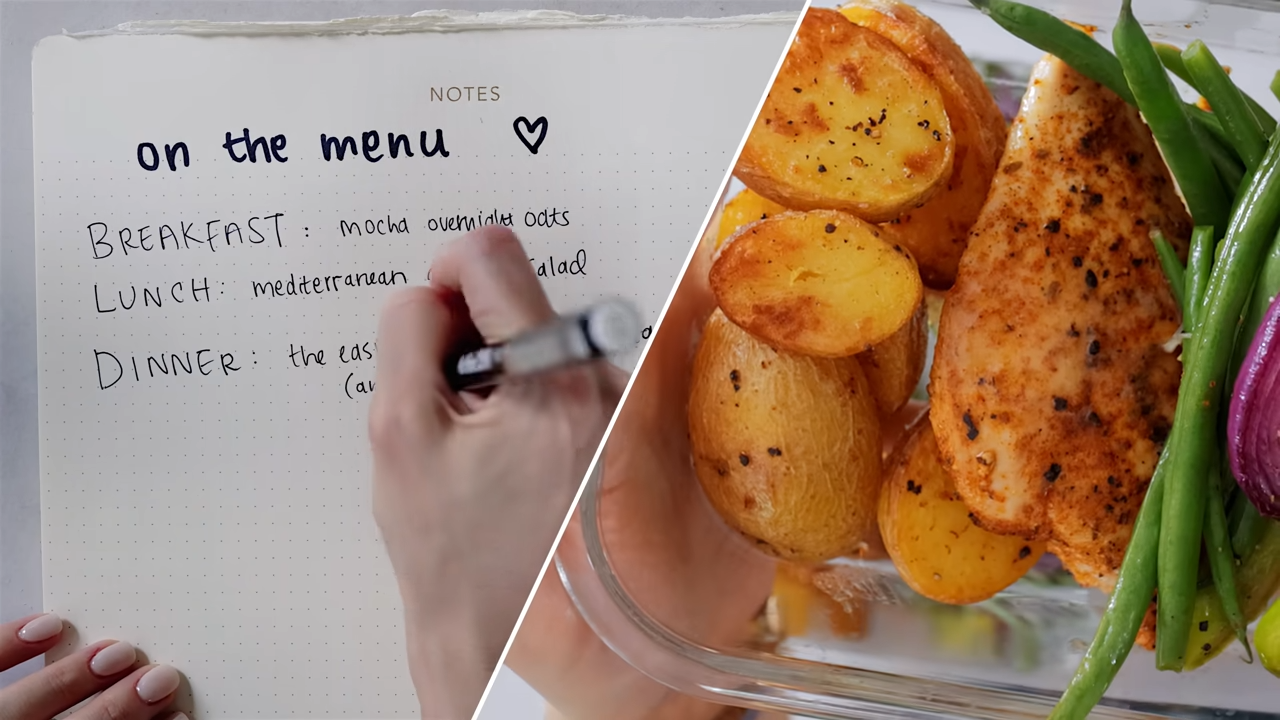 NOTES
on the menu ♡
BREAKFAST: mocha overnight oats
LUNCH: mediterranean salad
DINNER: the